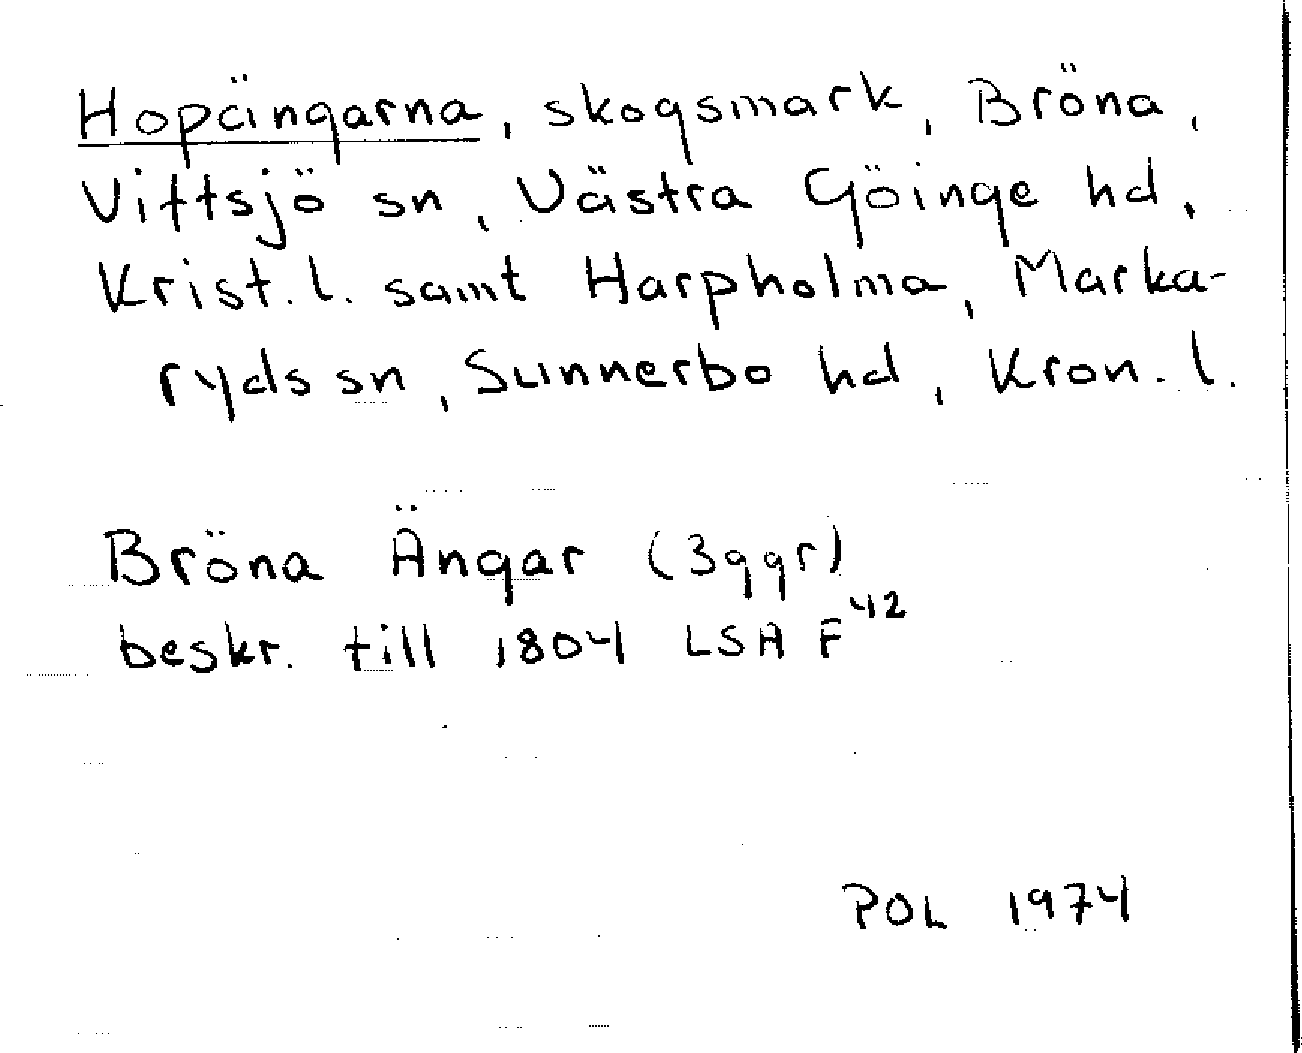 Hopängarna, skogsmark, Bröna,
Vittsjö sn, Västra Göinge hd,
Krist. l. samt Harpholma, Marka-
ryds sn, Sunnerbo hd, Kron. l.
Bröna Ängar (3ggr)
beskr. till 1804 LSA F⁴²
POL 1974